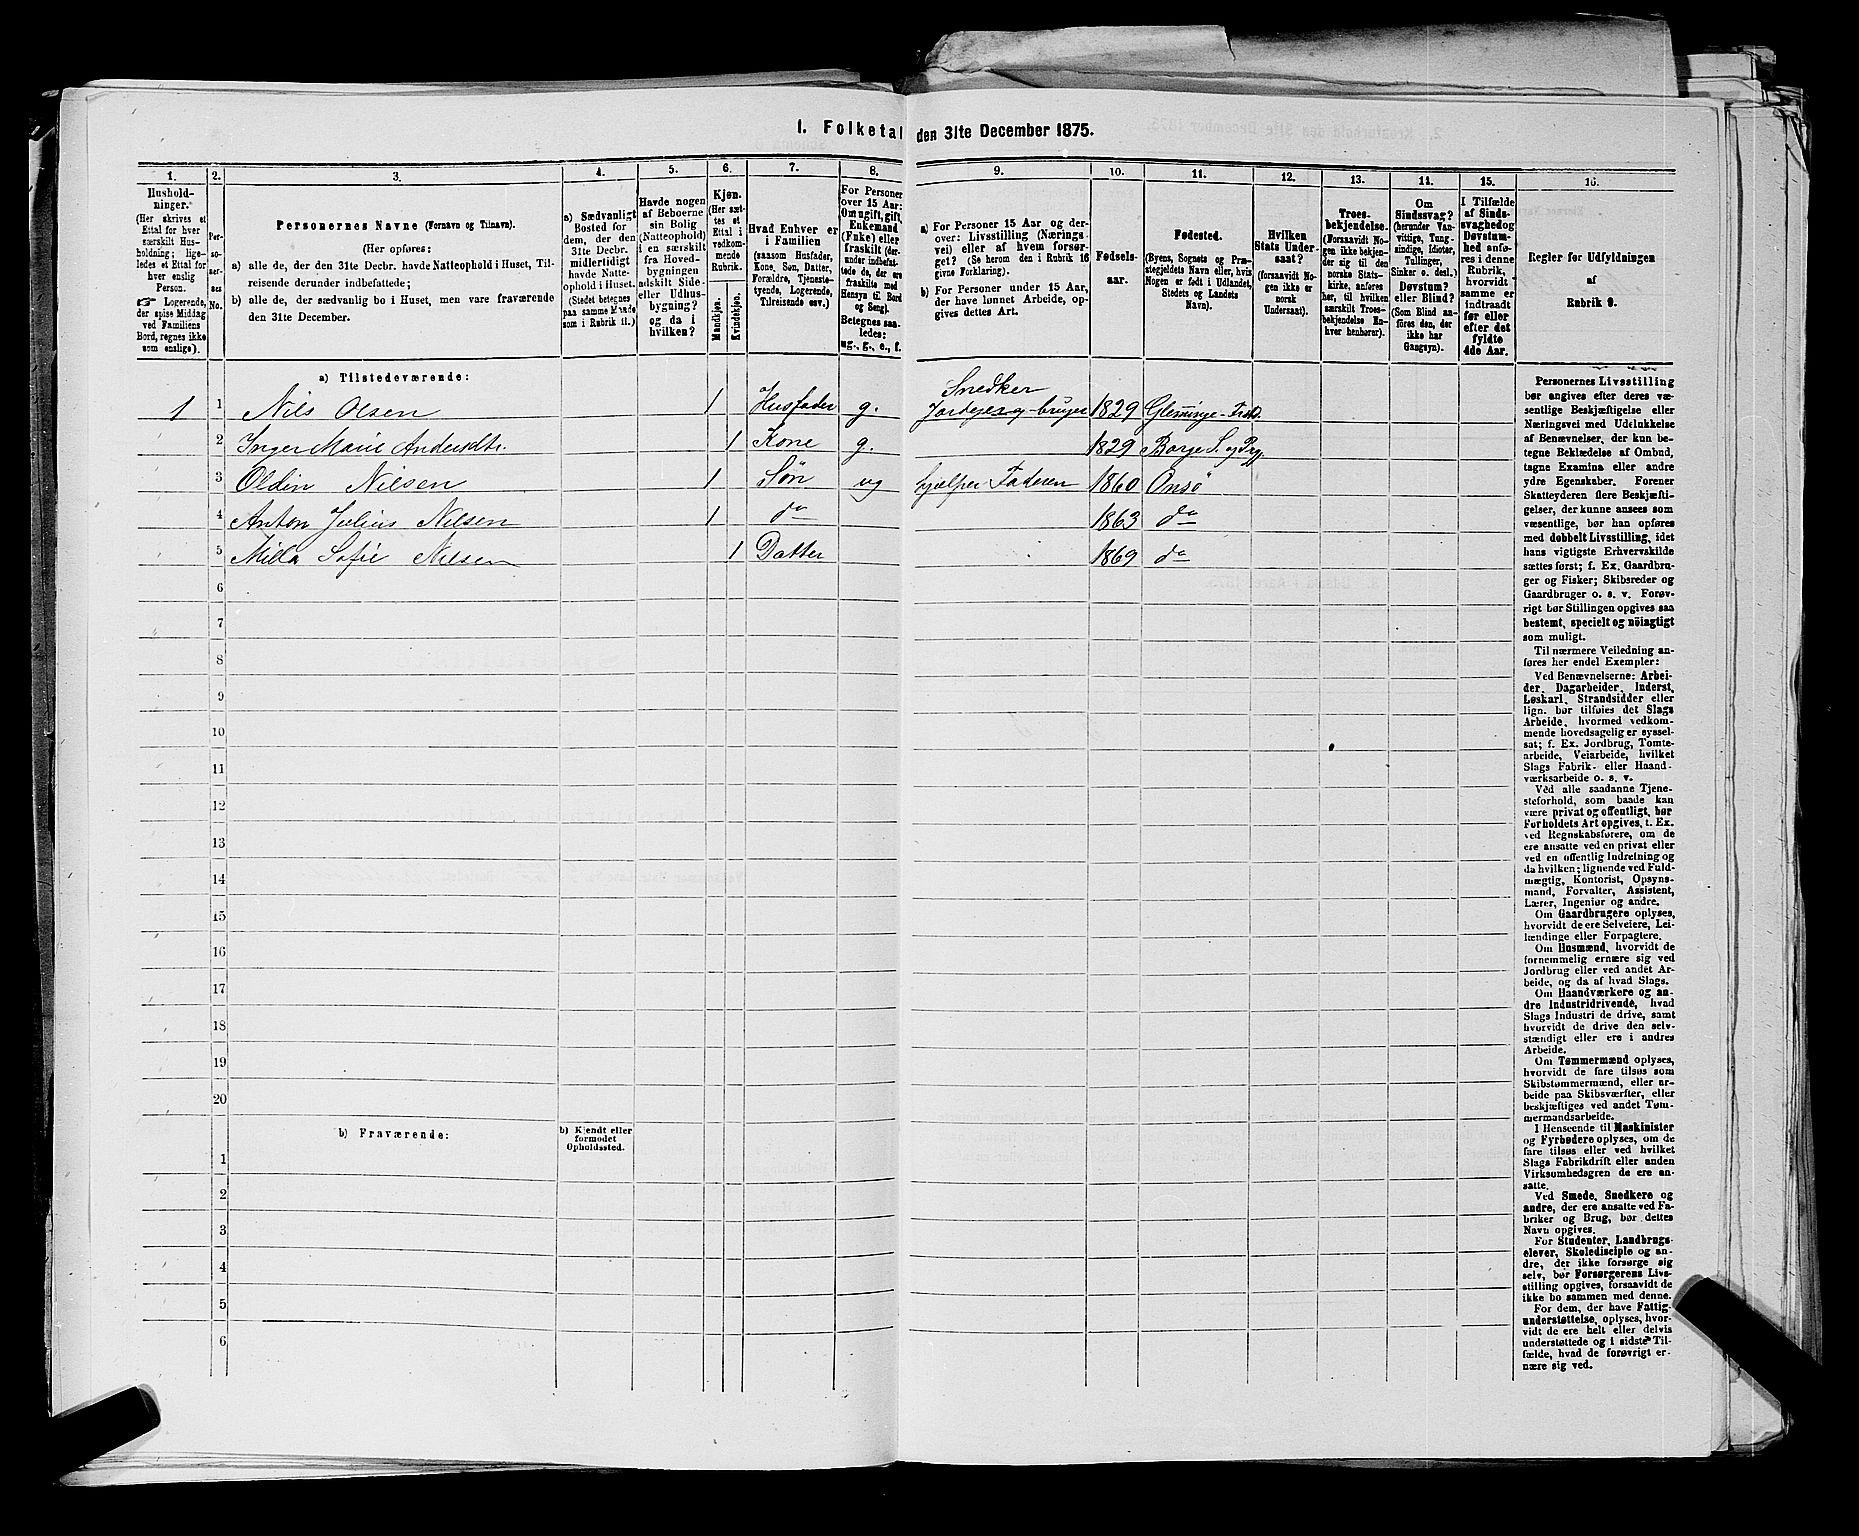 I. Folketal den 31te December 1875.
1. 2. 3. 4. 5. 6. 7. 8. 9. 10. 11. 12. 13. 14. 15. 16.
Hushold-
ninger.
(Her skrives et
Ettal for hver
særskilt Hus-
holdning; lige-
ledes et Ettal for
hver enslig
Person.
☞ Logerende,
der spise Middag
ved Familiens
Bord, regnes ikke
som enslige).
Per-
so-
ner-
nes
No.
Personernes Navne (Fornavn og Tilnavn).
(Her opføres:
a) alle de, der den 31te Decbr. havde Natteophold i Huset, Til-
reisende derunder indbefattede;
b) alle de, der sædvanlig bo i Huset, men vare fraværende
den 31te December.
a) Sædvanligt
Bosted for
dem, der den
31te Decbr.
midlertidigt
havde Natte-
ophold i Huset.
(Stedet betegnes
paa samme Maade
som i Rubrik 11.)
Havde nogen
af Beboerne
sin Bolig
(Natteophold)
i en særskilt
fra Hoved-
bygningen
adskilt Side-
eller Udhus-
bygning?
og da i
hvilken?
Kjøn.
(Her sæt-
tes et
Ettal i
vedkom-
mende
Rubrik.
Mandkjøn.
Kvindekjøn.
Hvad Enhver er
i Familien
(saasom Husfader,
Kone, Søn, Datter,
Forældre, Tjeneste-
tyende, Logerende,
Tilreisende osv.)
For Personer
over 15 Aar:
Om ugift, gift,
Enkemand
(Enke) eller
fraskilt (der-
under indbefat-
tede de, der ere
fraskilte med
Hensyn til Bord
og Seng).
Betegnes saa-
ledes:
ug., g., e., f.
a) For Personer 15 Aar og der-
over: Livsstilling (Nærings-
vei) eller af hvem forsør-
get? (Se herom den i Rubrik 16
givne Forklaring).
b) For Personer under 15 Aar,
der have lønnet Arbeide, op-
gives dettes Art.
Fødsels-
aar.
Fødested.
(Byens, Sognets og Præ-
stegjeldets Navn eller, hvis
Nogen er født i Udlandet,
Stedets og Landets
Navn).
Hvilken
Stats Under-
saat?
(forsaavidt No-
gen ikke er
norsk
Undersaat).
Troes-
bekjendelse.
(Forsaavidt No-
gen ikke bekjen-
der sig til den
norske Stats-
kirke, anføres
her, til hvilken
særskilt Troes-
bekjendelse En-
hver henhører).
Om
Sindssvag?
(herunder Van-
vittige, Tung-
sindige, Idioter,
Tullinger,
Sinker o. desl.)
Døvstum?
eller Blind?
(Som Blind an-
føres den, der
ikke har
Gangsyn).
I Tilfælde
af Sinds-
svaghed og
Døvstum-
hed anfø-
res i denne
Rubrik,
hvorvidt
samme er
indtraadt
før eller
efter det
fyldte
4de Aar.
Regler for Udfyldningen
af
Rubrik 9.
a) Tilstedeværende:
1 1 Nils Olsen 1 Husfader g. Snedker
Jordeier og -bruger 1829 Glemminge
2 Inger Marie Andersdtr. 1 Kone g. 1829 Borge S. og Pgj.
3 Oldin Nilsen 1 Søn ug hjælper Faderen 1860 Onsö
4 Anton Julius Nilsen 1 do 1863 do
5 Milla Sofie Nilsen 1 Datter 1869 do
6
7
8
9
10
11
12
13
14
15
16
17
18
19
20
b) Fraværende:
b) Kjendt eller
formodet
Opholdssted.
1
2
3
4
5
6
Personernes Livsstilling
bør angives efter deres væ-
sentlige Beskjæftigelse eller
Næringsvei med Udelukkelse
af Benævnelser, der kun be-
tegne Beklædelse af Ombud,
tagne Examina eller andre
ydre Egenskaber. Forener
Skatteyderen flere Beskjæfti-
gelser, der kunne ansees som
væsentlige, bør han opføres
med dobbelt Livsstilling, idet
hans vigtigste Erhvervskilde
sættes først; f. Ex. Gaardbru-
ger og Fisker; Skibsreder og
Gaardbruger o. s. v. Forøv-
rigt bør Stillingen opgives saa
bestemt, specielt og nöiagtigt
som muligt.
Til nærmere Veiledning an-
føres her endel Exempler:
Ved Benævnelserne: Arbei-
der, Dagarbeider, Inderst,
Løskarl, Strandsidder eller
lign. bør tilføies det Slags
Arbeide, hvormed vedkom-
mende hovedsagelig er syssel-
sat; f. Ex. Jordbrug, Tomte-
arbeide, Veiarbeide, hvilket
Slags Fabrik- eller Haand-
værksarbeide o. s. v.
Ved alle saadanne Tjene-
steforhold, som baade kan
være privat og offentligt, bør
Forholdets Art opgives, f. Ex.
ved Regnskabsførere, om de
ere ansatte ved en privat eller
ved en offentlig Indretning og
da hvilken; lignende ved Fuld-
mægtig, Kontorist, Opsyns-
mand, Forvalter, Assistent,
Lærer, Ingeniør og andre.
Om Gaardbrugere oplyses,
hvorvidt de ere Selveiere, Lei-
lændinge eller Forpagtere.
Om Husmænd, hvorvidt de
fornemmelig ernære sig ved
Jordbrug eller ved andet Ar-
beide, og da af hvad Slags.
Om Haandværkere og an-
dre Industridrivende, hvad
Slags Industri de drive, samt
hvorvidt de drive den selv-
stændigt eller ere i andres
Arbeide.
Om Tømmermænd oplyses,
hvorvidt de fare tilsøs som
Skibstømmermænd, eller ar-
beide paa Skibsværfter, eller
beskjæftiges ved andet Tøm-
mermandsarbeide.
I Henseende til Maskinister
og Fyrbødere oplyses, om de
fare tilsøs eller ved hvilket
Slags Fabrikdrift eller anden
Virksomhedsgren de ere an-
satte.
Ved Smede, Snedkere og
andre, der ere ansatte ved Fa-
briker og Brug, bør dettes
Navn opgives.
For Studenter, Landbrugs-
elever, Skoledisciple og an-
dre, der ikke forsørge sig
selv, bør Forsørgerens Livs-
stilling opgives, forsaavidt de
ikke bo sammen med denne.
For dem, der have Fattig-
understøttelse, oplyses, hvor-
vidt de ere helt eller delvis
understøttede og i sidste Til-
fælde, hvad de forøvrigt er-
nære sig ved.